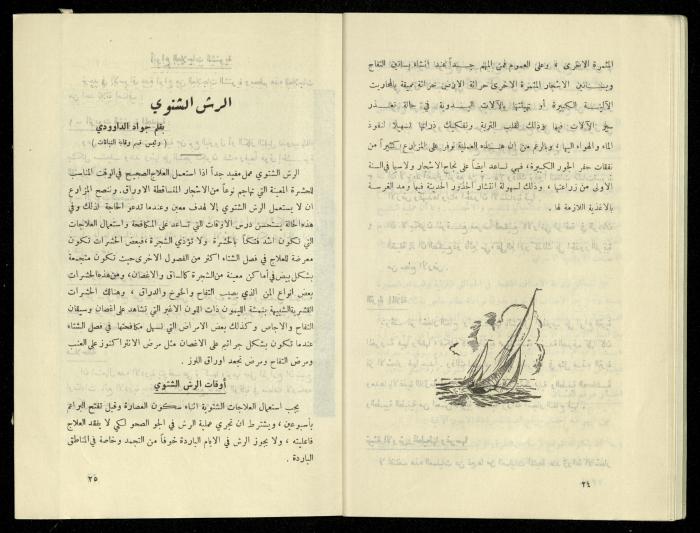 المثمرة الاخرى ، وعلى العموم فمن المهم جـــداً عند انشاء بساتين التفاح
وبســاتين الاشجار المثمرة الاخرى حراثة الارض حراثة عميقة بالمحاريث
الآليــة الكبيرة او تهيئتها بالآلات اليدوية في حالة تعــذر
سير الآلات فيها وذلك لقلب التربة وتفكيك ذراتها تسهيلا لنفوذ
الماء والهواء اليها ، وبالرغم من ان هذه العملية توفر على المزارع كثيراً من
نفقات حفر الجور الكبيرة، فهي تساعد ايضاً على نجاح الاشجار ولاسيما في السنة
الاولى من زراعتها ، وذلك لسهولة انتشار الجذور الحديثة فيها ومد الغرسة
بالاغذية اللازمة لها .
٢٤
الرش الشتوي
بقلم جواد الداوودي
( رئيس قسم وقاية النباتات )
الرش الشتوي عمل مفيد جداً اذا استعمل العلاج الصحيح في الوقت المناسب
للحشرة المعينة التي تهاجم نوعاً من الاشجار المتساقطة الاوراق. وننصح المزارع
ان لا يستعمل الرش الشتوي إلا لهدف معين وعندما تدعو الحاجة لذلك وفي
هذه الحالة يستحسن درس الاوقات التي تساعد على المكافحة واستعمال العلاجات
التي تكون اشد فتكاً بالحشرة ولا تؤذي الشجرة ، فبعض الحشرات تكون
معرضة للعلاج في فصل الشتاء اكثر من الفصول الاخرى حيث تكون متجمعة
بشكل بيض في أماكن معينة من الشجرة كالساق والاغصان، ومن هذه الحشرات
بعض انواع المن الذي يصيب التفاح والخوخ والدراق ، وهنالك الحشرات
القشرية الشبيهة بنمشة الليمون ذات اللون الاغبر التي تشاهد على أغصان وسيقان
التفاح والاجاص وكذلك بعض الامراض التي تسهل مكافحتها في فصل الشتاء
عندما تكون بشكل جراثيم على الاغصان مثل مرض الانثراكنوز على العنب
ومرض التفاح ومرض تجعد اوراق اللوز .
أوقات الرش الشتوي
يجب استعمال العلاجات الشتوية اثناء سكون العصارة وقبل تفتح البراعم
بأسبوعين ، ويشترط ان تجري عملية الرش في الجو الصحو لكي لا يفقد العلاج
فاعليته ، ولا يجوز الرش في الايام الباردة خوفاً من التجمد وخاصة في المناطق
الباردة .
٢٥